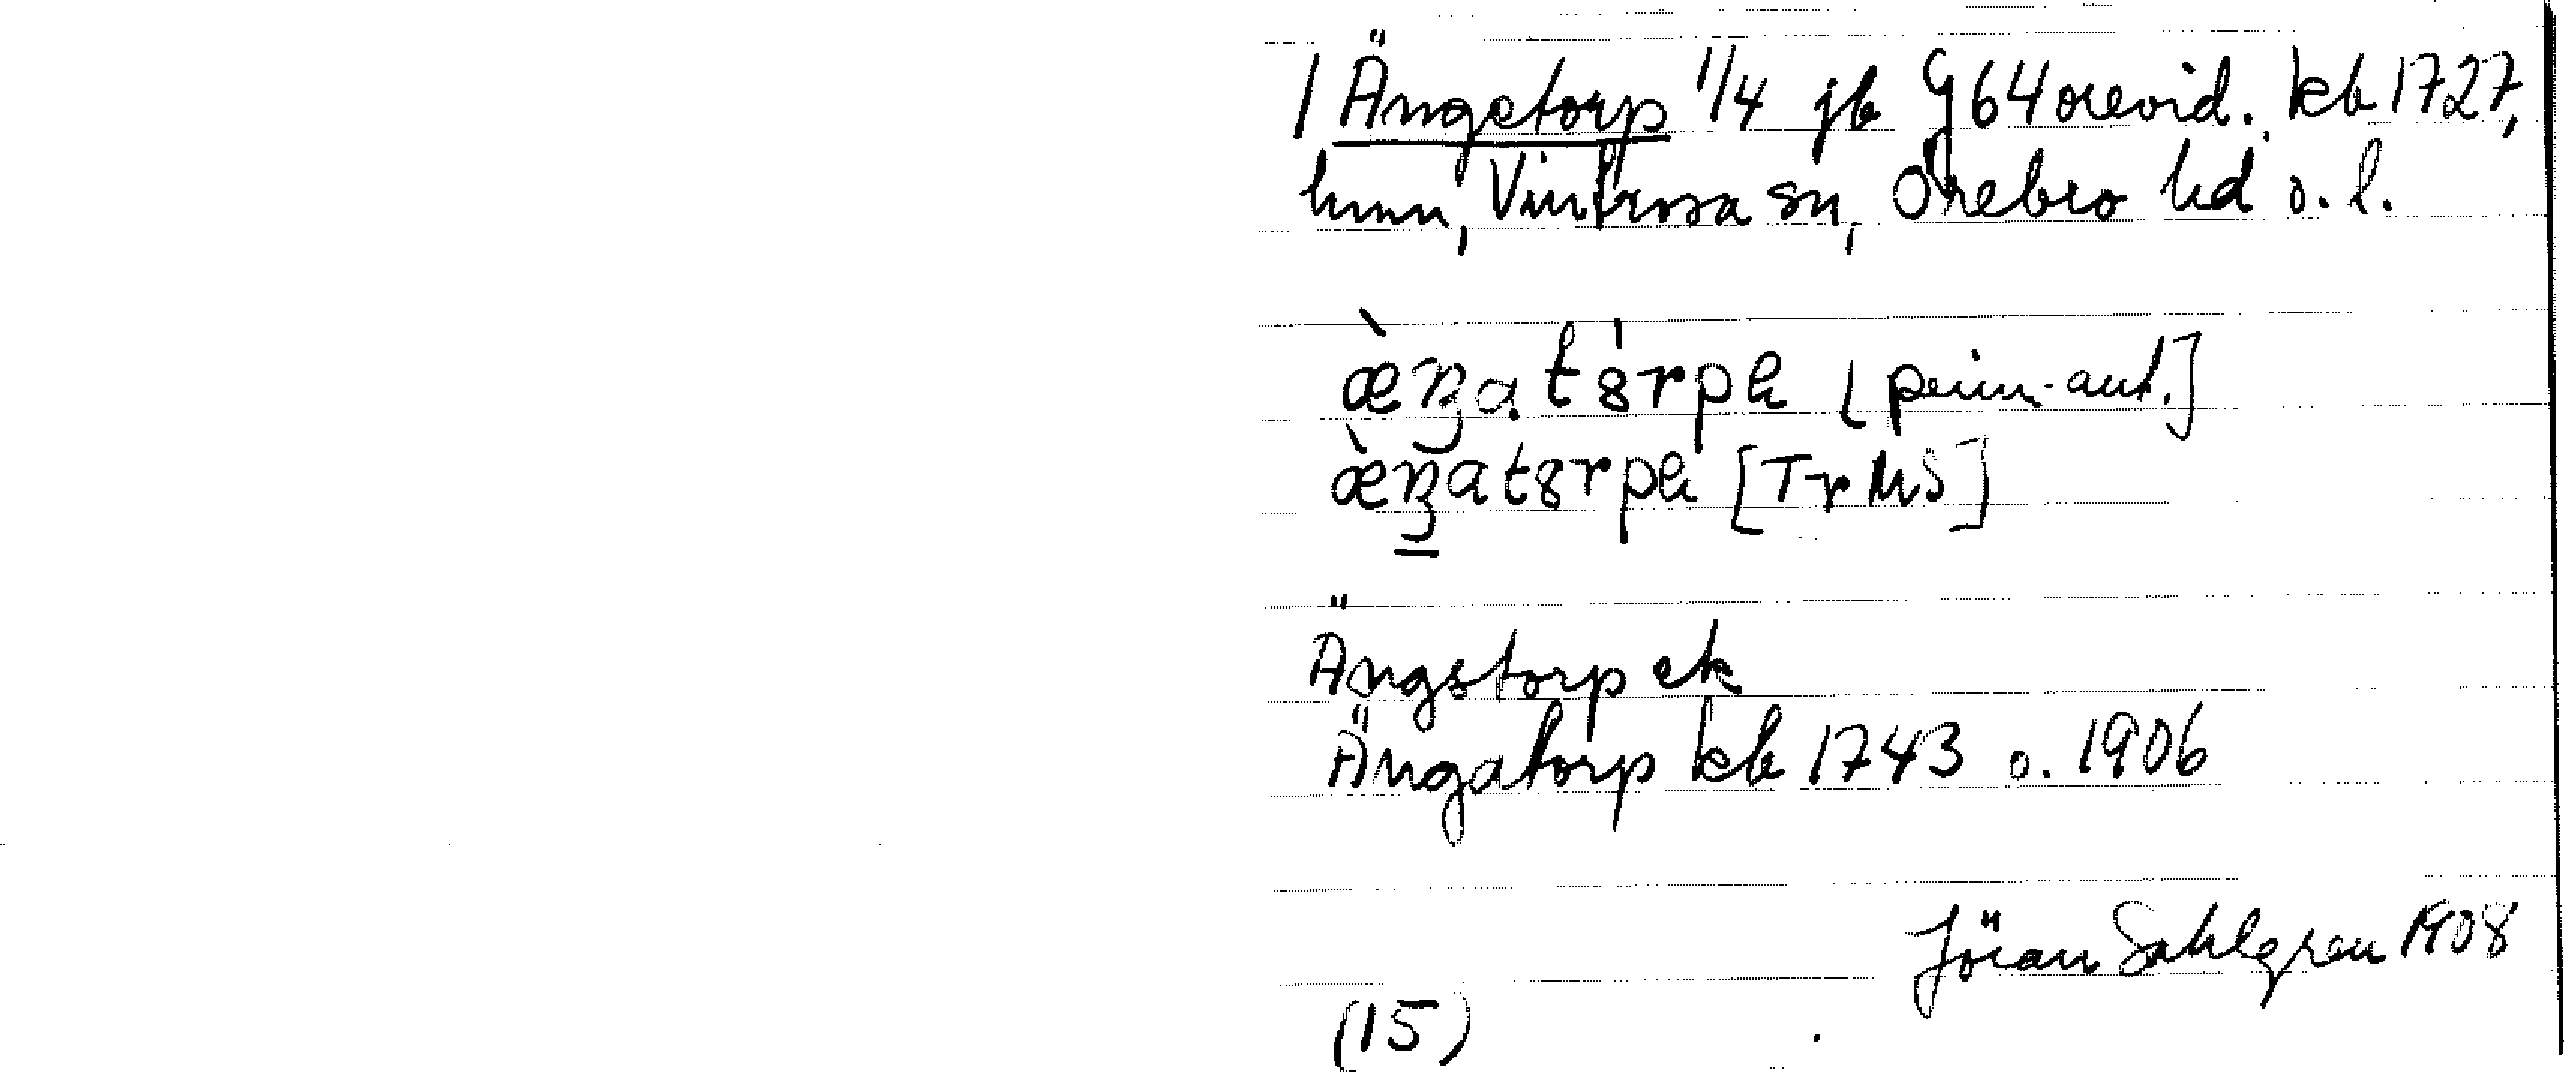 / Ängstorp 1/4 jb G 64 orevid. kb 1727,
hmn, Vintrosa sn, Örebro hd o. l.
æ̀ŋatȣ́rpa [prim.-ant.]
æ̀ŋatȣrpa [Tr MS]
Ängstorp ek
Ängatorp kb 1743 o. 1906
Jöran Sahlgren 1908
(15)